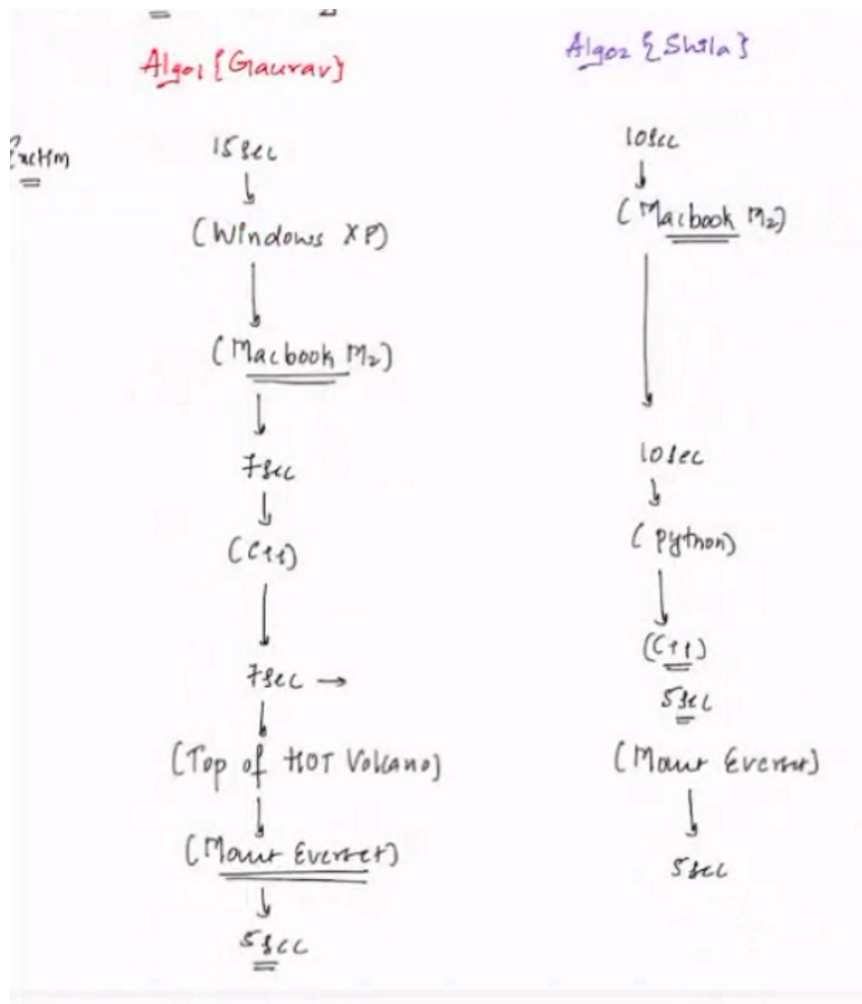 Algo1 {Gaurav}
15sec
(Windows XP)
(Macbook M2)
7sec
(C++)
7sec →
(Top of HOT Volcano)
(Mount Everest)
5sec
Algo2 {Shila}
10sec
(Macbook M2)
10sec
(python)
(C++)
5sec
(Mount Everest)
5sec